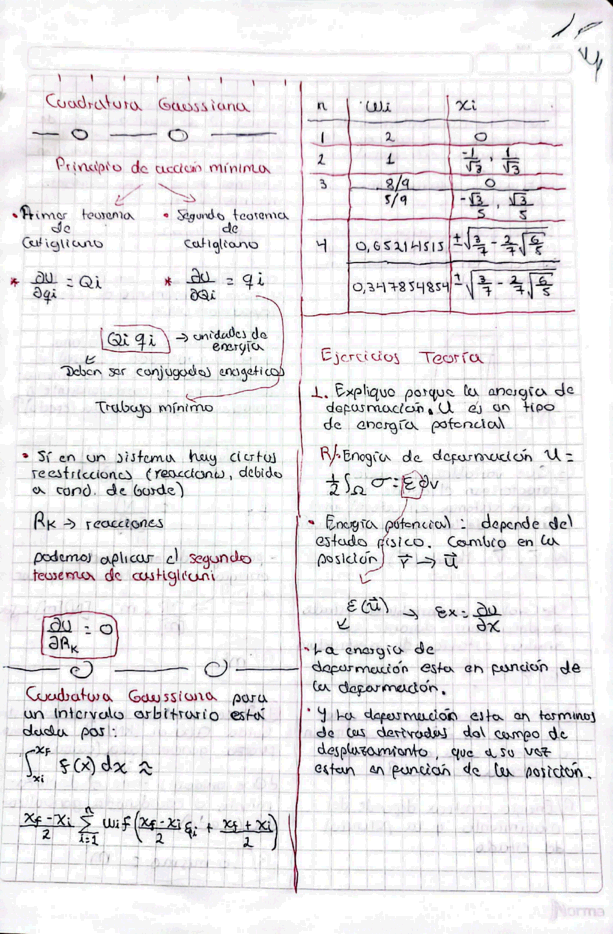 Cuadratura Gaussiana
Principio de acción mínima
• Primer teorema de Catigliano
• Segundo teorema de catigliano
* ∂U/∂qi = Qi
* ∂U/∂Qi = qi
Qi qi → unidades de energía
Deben ser conjugados energéticos
Trabajo mínimo
• Si en un sistema hay ciertas
reestricciones (reacciones, debido
a cond. de borde)
RK → reacciones
podemos aplicar el segundo
teorema de castigliani
∂U/∂RK = 0
Cuadratura Gaussiana para
un intervalo arbitrario está
dada por:
∫xi^xf f(x) dx ≈
(xf - xi)/2 Σ i=1 n wi f((xf - xi)/2 ξi + (xf + xi)/2)
n wi xi
1 2 0
2 1 -1/√3 , 1/√3
3 8/9 0
5/9 -√3/5 , √3/5
4 0,65214515 ±√(3/7 - 2/7 √(6/5))
0,347854854 ±√(3/7 - 2/7 √(6/5))
Ejercicios Teoría
1. Explique porque la energía de
deformación, U es un tipo
de energía potencial
R/. Enegía de deformación U =
1/2 ∫Ω σ = ε dv
• Energía potencial: depende del
estado físico. Cambio en la
posición r⃗ → u⃗
ε(u⃗) → εx = ∂u/∂x
• La energía de
deformación esta en función de
la deformación.
• Y la deformación esta en terminos
de las derivadas del campo de
desplazamiento, que a su vez
estan en función de la posición.
Norma